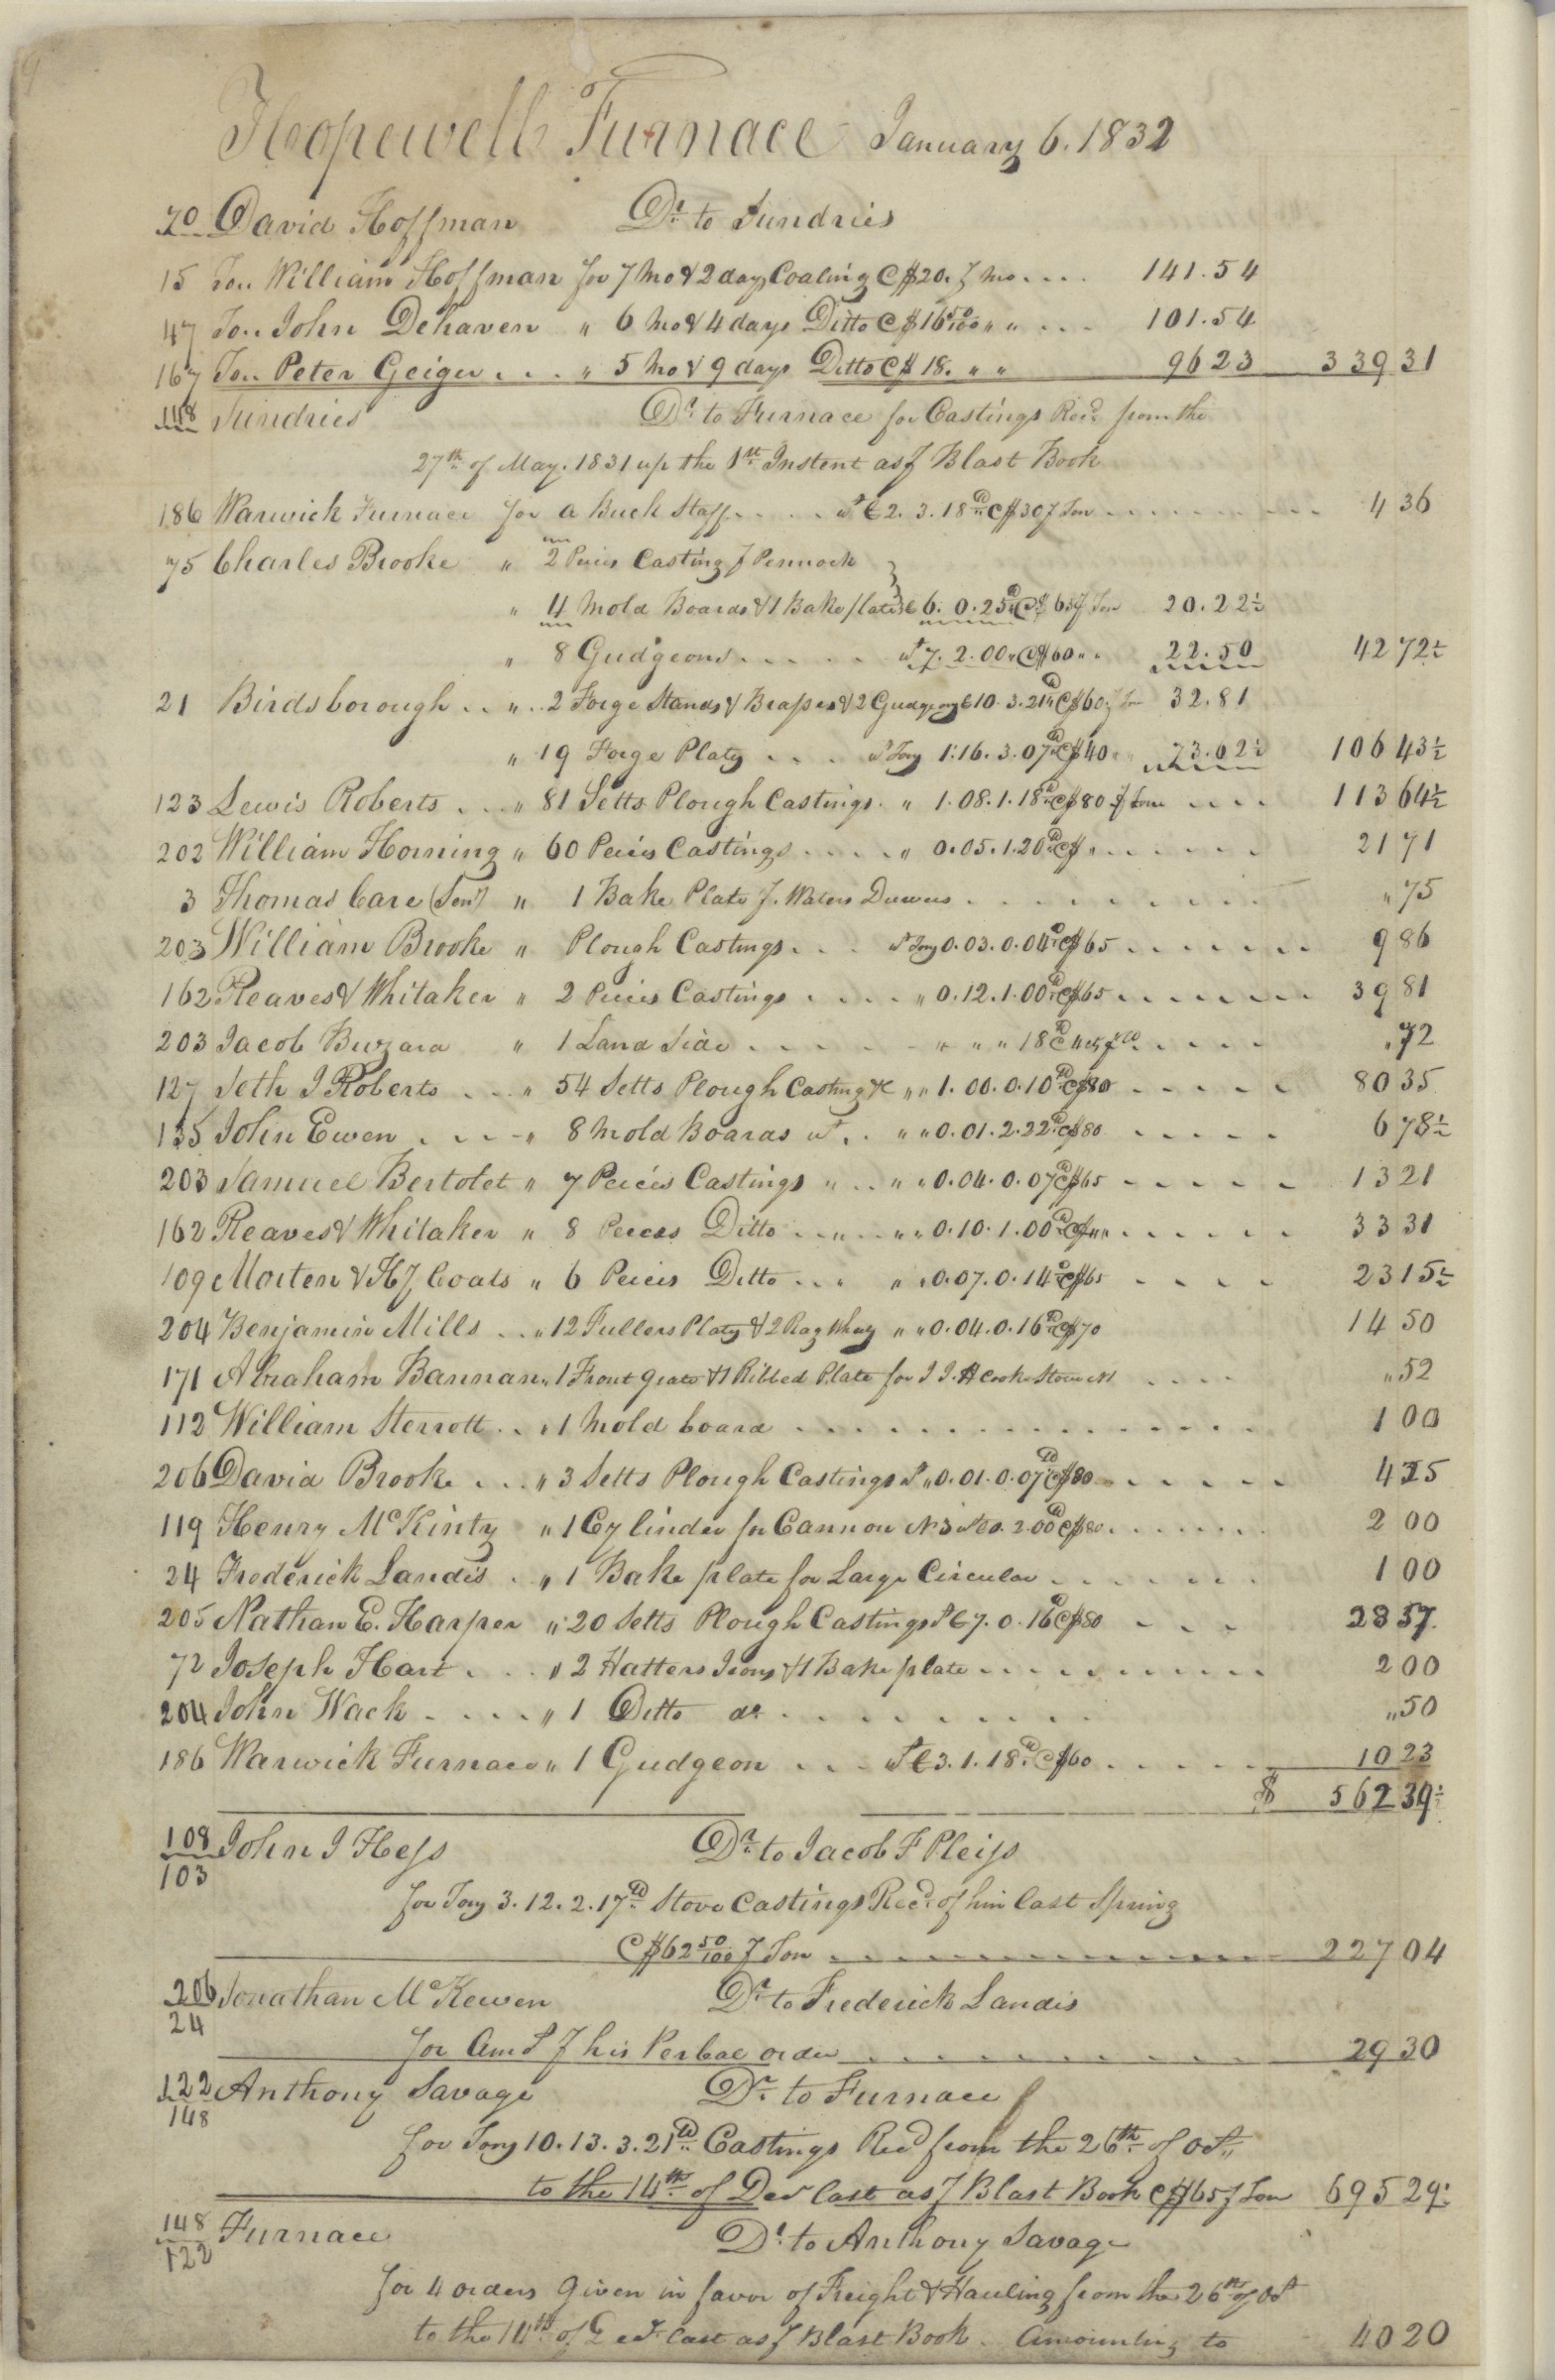 Hopewell Furnace January 6. 1832
70 David Hoffman Dr. to Sundries
15 To.. William Hoffman for 7 Mo & 2 days Coaling @ $20. ⅌ mo.... 141.54
47 To.. John Dehaven " 6 Mo & 4 days Ditto @ $16 50/100 " " ... 101.54
167 To.. Peter Geiger... " 5 Mo & 9 days Ditto @ $18. " " 96 23 339 31
148 Sundries Dr. to Furnace for Castings Recd. from the
27th of May. 1831 up the 1st Instent as ⅌ Blast Book
186 Warwick Furnace for a Buck Staff..... wt C 2. 3. 18 lb @ $30 ⅌ Ton ......... 4 36
75 Charles Brooke " 2 Peices Casting ⅌ Pennock
" 4 Mold Boards & 1 Bake plate C 6. 0. 25 lb @ $65 ⅌ Ton 20.22½
" 8 Gudgeons...... wt 7. 2. 00 " @ $60 " " 22.50 42 72½
21 Birdsborough.. " .. 2 Forge Stands & Brasses & 2 Gudgeons C 10. 3. 21 lb @ $60 ⅌ Ton 32.81
" 19 Forge Plats .... wt Tons 1.16. 3. 07 lb @ $40 " 73.62½ 106 43½
123 Lewis Roberts... " 81 Setts Plough Castings. " 1.08.1.18 lb @ $80 ⅌ Ton .... 113 64½
202 William Horning " 60 Peices Castings..... " 0.05.1.20 lb @ $ " ...... 21 71
3 Thomas Care (Senr) " 1 Bake Plate ⅌. Waters Dewees ......... " 75
203 William Brooke " Plough Castings... wt Tons 0.03.0.04 lb @ $65 ....... 9 86
162 Reaves & Whitaker " 2 Peices Castings .... " 0.12.1.00 lb @ $65 ....... 39 81
203 Jacob Buzard " 1 Land Side ..... " " " 18 lb @ 4 cts ⅌ lb ..... .72
127 Seth I Roberts... " 54 Setts Plough Castings &c " " 1. 00. 0. 10 lb @ $80 ..... 80 35
135 John Ewen .... " 8 Mold Boards wt.. " " 0.01.2.22 lb @ $80 ..... 6 78½
203 Samuel Bertolet " 7 Peices Castings " .. " " 0.04.0.07 lb @ $65 ..... 13 21
162 Reaves & Whitaker " 8 Peices Ditto ... " ... " " 0.10.1.00 lb @ $ " " ...... 33 31
109 Morten & H J Coats " 6 Peices Ditto ... " " " 0.07.0.14 lb @ $65 .... 23 15½
204 Benjamin Mills ... " 12 Fullers Plats & 2 Rag Whey " " 0.04.0.16 lb @ $70 14 50
171 Abraham Bannan " 1 Front grate & 1 Ribbed Plate for I I. H Cook Stove .... " 52
112 William Sterrett... " 1 Mold board ............... 1 00
206 David Brooke.... " 3 Setts Plough Castings wt " 0.01.0.07 lb @ $80 ...... 4 25
119 Henry McKinty " 1 Cylinder for Cannon No 3 wt C 0. 2.00 lb @ $80 ....... 2 00
24 Frederick Landis. " 1 Bake plate for Large Circular ....... 1 00
205 Nathan E. Harper " 20 Setts Plough Castings wt C 7. 0. 16 lb @ $80 .... 28 57.
72 Joseph Hart.... " 2 Hatters Irons & 1 Bake plate .......... 2 00
204 John Wack ..... " 1 Ditto do ........ " 50
186 Warwick Furnace " 1 Gudgeon ... wt C 3. 1. 18 lb @ $60 ...... 10 23
$ 562 39½
108 John I Hess Dr. to Jacob F Pleiss
103
for Tons 3. 12. 2. 17 lb Stove Castings Recd. of him last Spring
@ $62 50/100 ⅌ Ton ............. 227 04
206 Jonathan McKewen Dr. to Frederick Landis
24
for Amt ⅌ his Verbal order ......... 29 30
122 Anthony Savage Dr. to Furnace
148
for Tons 10. 13. 3. 21 lb Castings Recd from the 26th of Oct..
to the 14th of Decr last as ⅌ Blast Book @ $65 ⅌ Ton 695 29½
148 Furnace Dr. to Anthony Savage
122
for 4 orders Given in favor of Freight & Hauling from the 26th of Oct
to the 14th of Decr last as ⅌ Blast Book. Amounting to 40 20